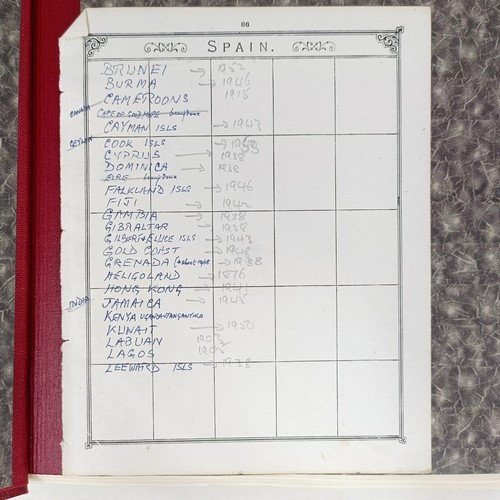 86
SPAIN.
BRUNEI → 1952
BURMA → 1946
CAMEROONS 1915
CANADA
CAPE OF GOOD HOPE
CAYMAN ISLS → 1947
CEYLON
COOK ISLS → 1938
CYPRUS → 1938
DOMINICA → 1938
EIRE
FALKLAND ISLS → 1946
FIJI →
GAMBIA → 1938
GIBRALTAR → 1938
GILBERT & ELLICE ISLS → 1943
GOLD COAST → 1948
GRENADA → 1938
HELIGOLAND → 1876
HONG KONG →
INDIA
JAMAICA → 1945
KENYA UGANDA TANGANYIKA
KUWAIT → 1950
LABUAN
LAGOS
LEEWARD ISLS → 1938